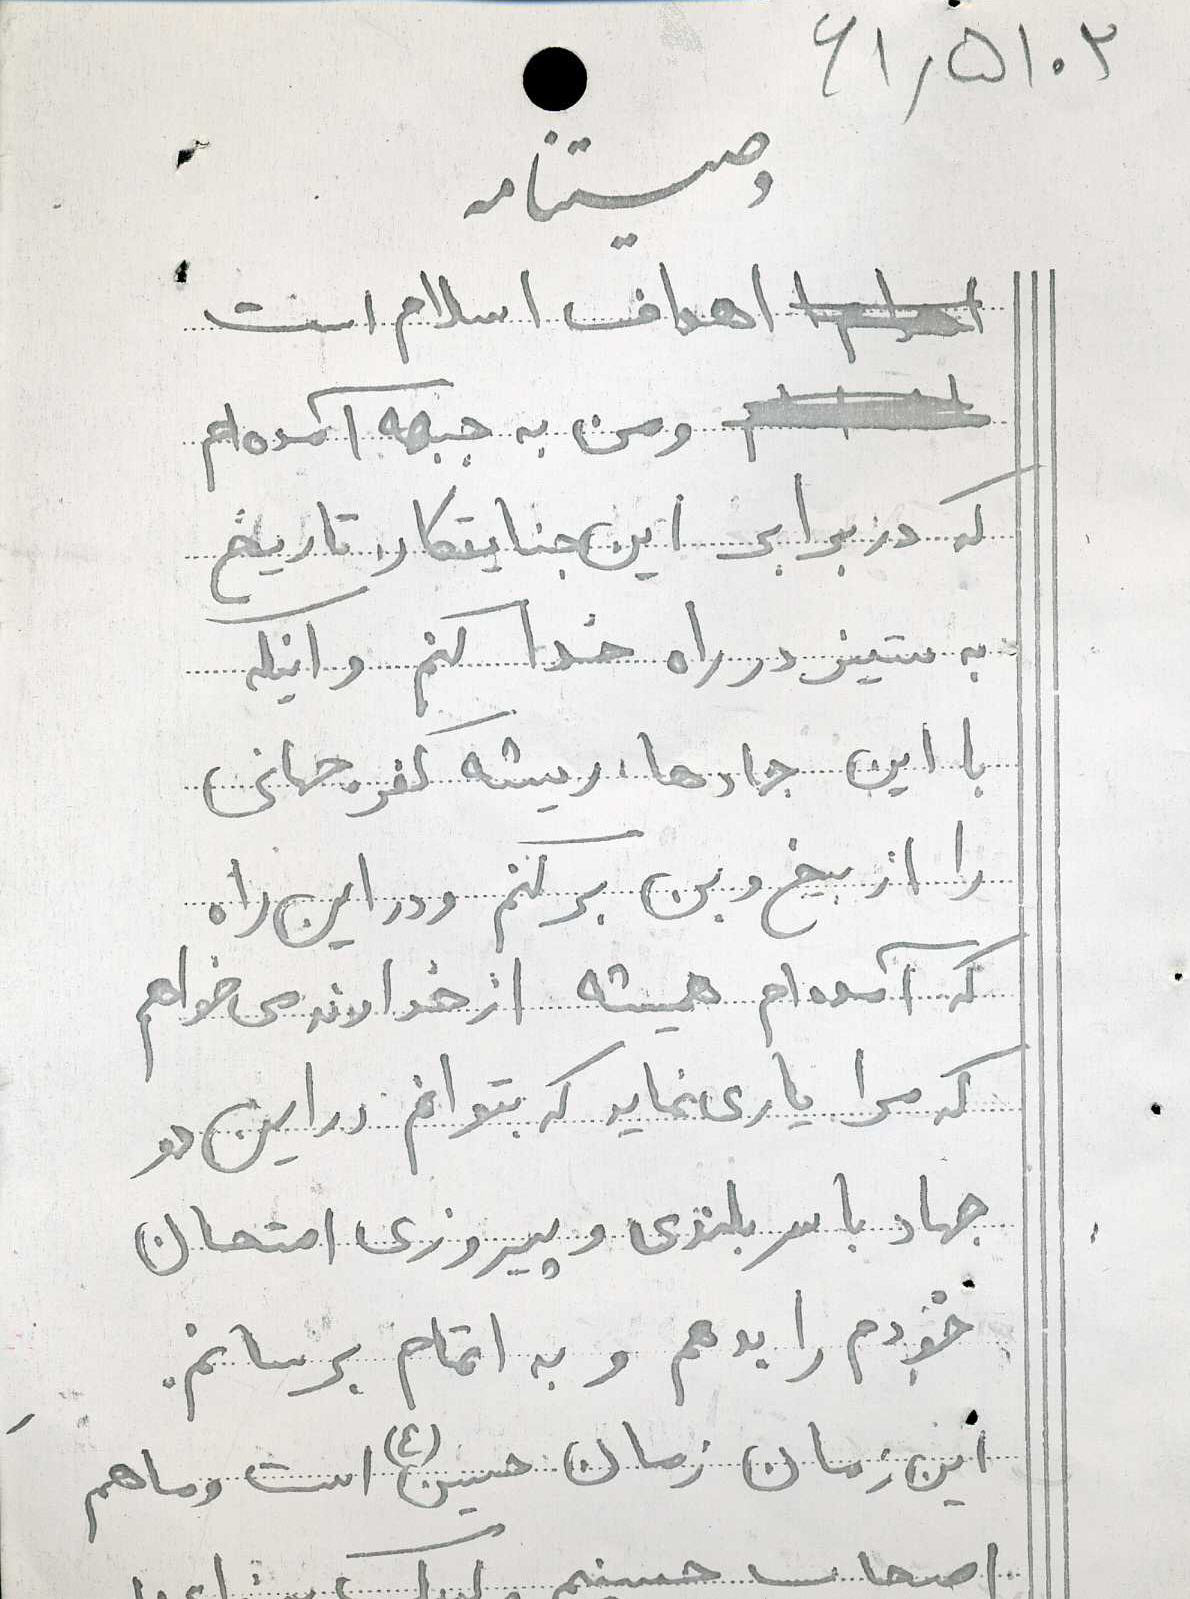 ۶۱/۵۱۰۲
وصیتنامه
اهداف اسلام است
ومن به جبهه آمده‌ام
که در برابر این جنایتکار تاریخ
به ستیز در راه خدا کنم و اینکه
با این جهادها ریشه کفر جهانی
را از بیخ و بن بر کنم و در این راه
که آمده‌ام همیشه از خداوند می‌خواهم
که مرا یاری نماید که بتوانم در این دو
جهاد با سر بلندی و پیروزی امتحان
خودم را بدهم و به اتمام برسانم.
این زمان زمان حسین (ع) است وما هم
اصحاب حسینیم